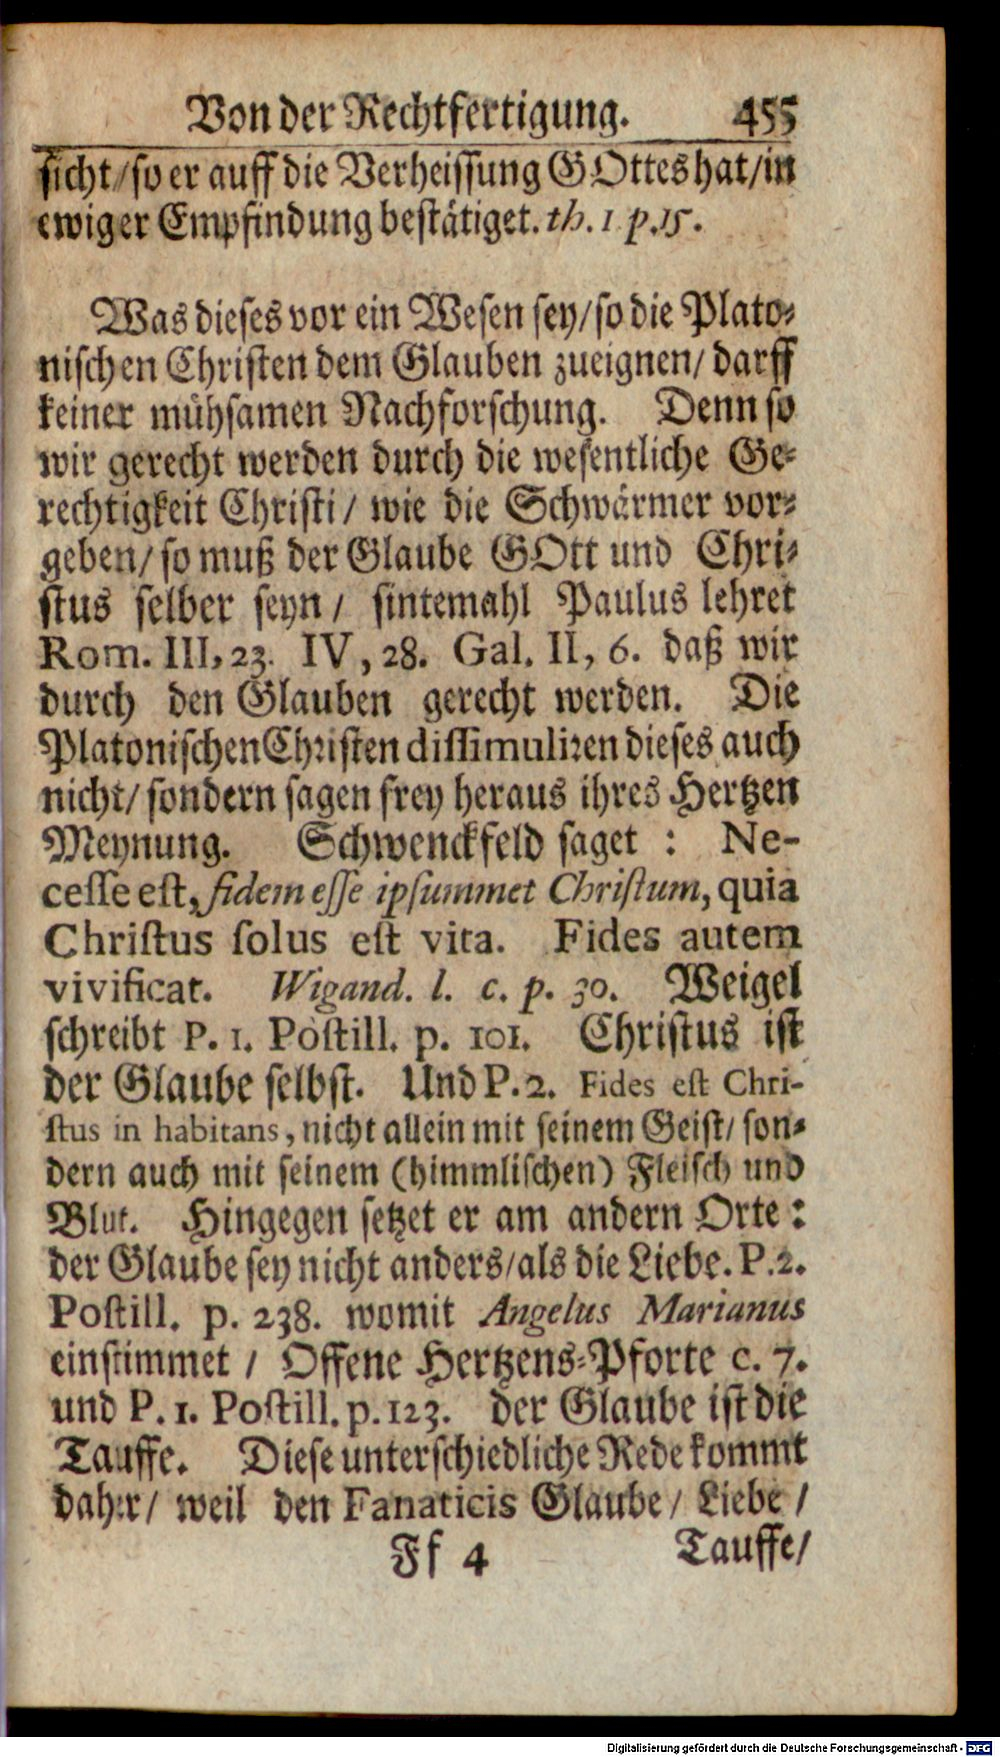 Von der Rechtfertigung. 455
sicht/ so er auff die Verheissung GOttes hat/ in
ewiger Empfindung bestätiget. th. 1 p. 15.
Was dieses vor ein Wesen sey/ so die Plato-
nischen Christen dem Glauben zueignen/ darff
keiner mühsamen Nachforschung. Denn so
wir gerecht werden durch die wesentliche Ge-
rechtigkeit Christi/ wie die Schwärmer vor-
geben/ so muß der Glaube GOtt und Chri-
stus selber seyn/ sintemahl Paulus lehret
Rom. III, 23. IV, 28. Gal. II, 6. daß wir
durch den Glauben gerecht werden. Die
Platonischen Christen dissimuliren dieses auch
nicht/ sondern sagen frey heraus ihres Hertzen
Meynung. Schwenckfeld saget: Ne-
cesse est, fidem esse ipsummet Christum, quia
Christus solus est vita. Fides autem
vivificat. Wigand. l. c. p. 30. Weigel
schreibt P. 1. Postill. p. 101. Christus ist
der Glaube selbst. Und P. 2. Fides est Chri-
stus in habitans, nicht allein mit seinem Geist/ son-
dern auch mit seinem (himmlischen) Fleisch und
Blut. Hingegen setzet er am andern Orte:
der Glaube sey nicht anders/ als die Liebe. P. 2.
Postill. p. 238. womit Angelus Marianus
einstimmet/ Offene Hertzens-Pforte c. 7.
und P. 1. Postill. p. 123. der Glaube ist die
Tauffe. Diese unterschiedliche Rede kommt
daher/ weil den Fanaticis Glaube/ Liebe/
Ff 4 Tauffe/
Digitalisierung gefördert durch die Deutsche Forschungsgemeinschaft - DFG